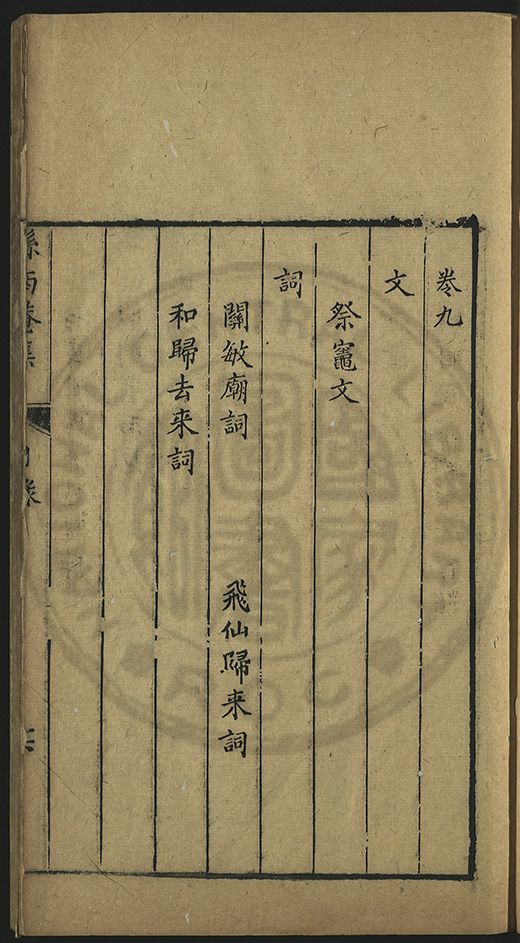 卷九
文
祭竈文
詞
關敏廟詞　飛仙歸来詞
和歸去来詞
孫西菴集　目錄